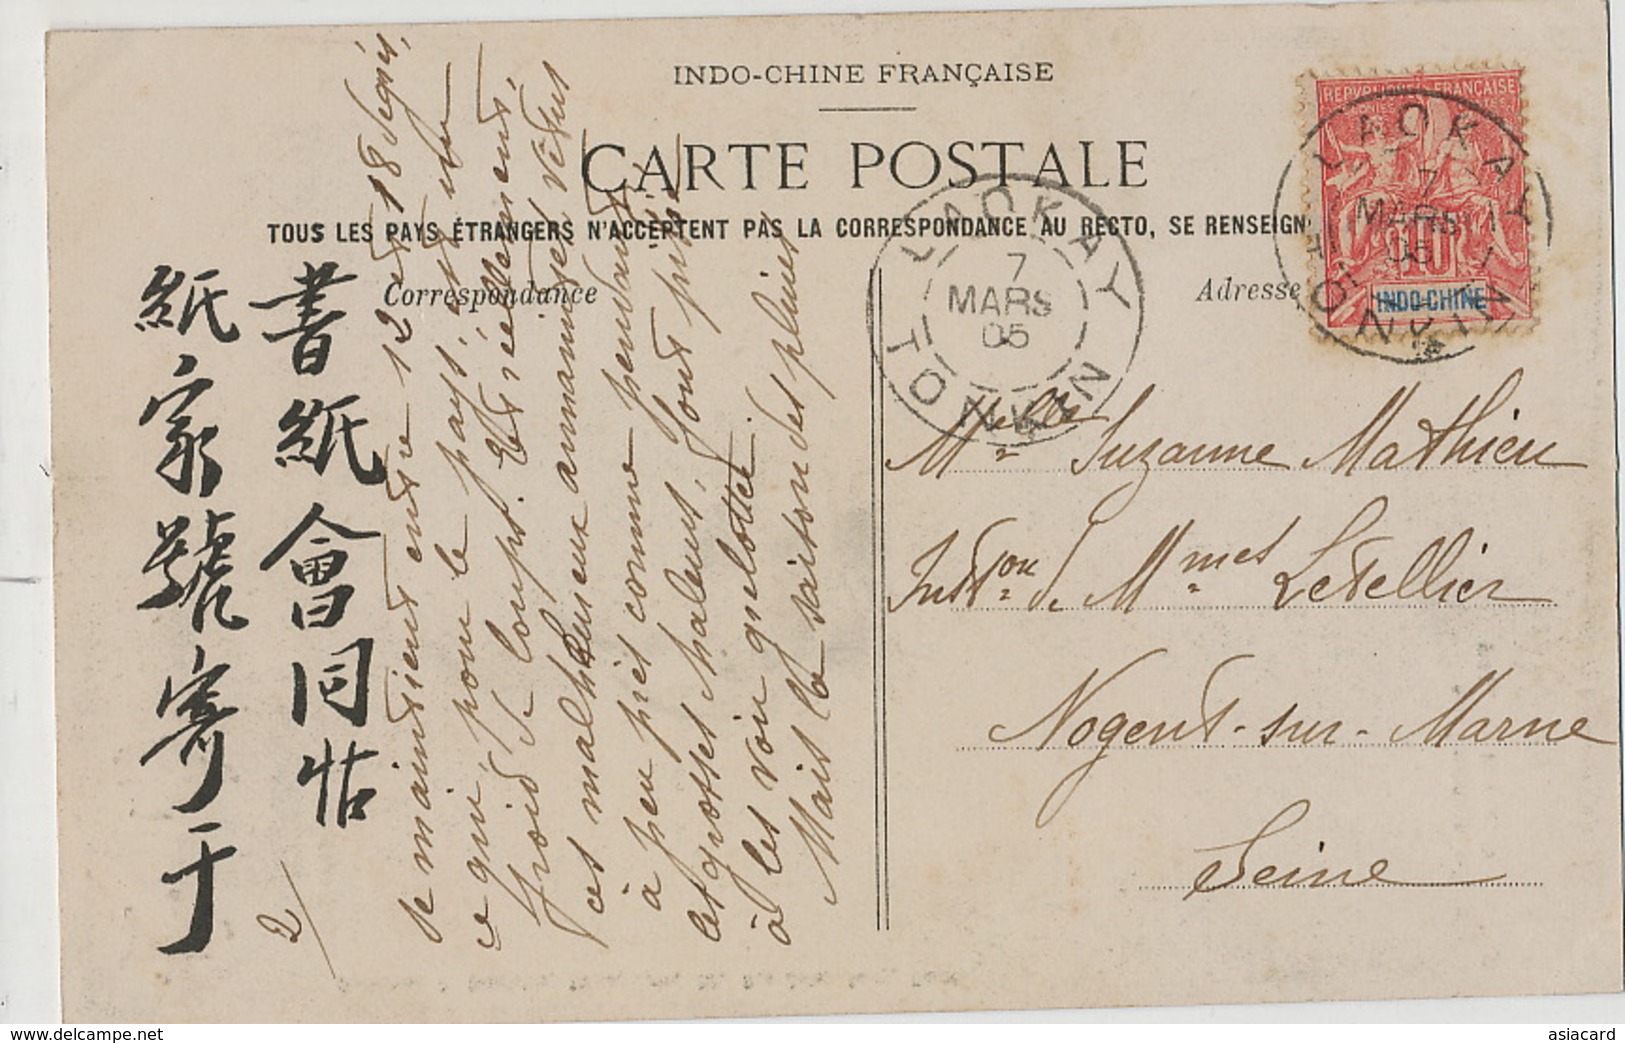 INDO-CHINE FRANÇAISE
CARTE POSTALE
TOUS LES PAYS ÉTRANGERS N'ACCEPTENT PAS LA CORRESPONDANCE AU RECTO, SE RENSEIGN
Correspondance
Adresse
REPUBLIQUE FRANÇAISE
10
INDO-CHINE
LAOKAY
7
MARS
05
TONKIN
LAOKAY
7
MARS
05
TONKIN
書紙會同
紙家號寄于
2/
se maintient entre 12 et 18 degrés,
ce qui, pour le pays, est un
froid de loups. Et réellement,
ces malheureux annamites vêtus
à peu près comme pendant
les grosses chaleurs, font pitié
à les voir grelotter.
Mais la saison des pluies
Melle Suzanne Mathieu
Instion de Mmes Letellier
Nogent-sur-Marne
Seine
delcampe.net
asiacard